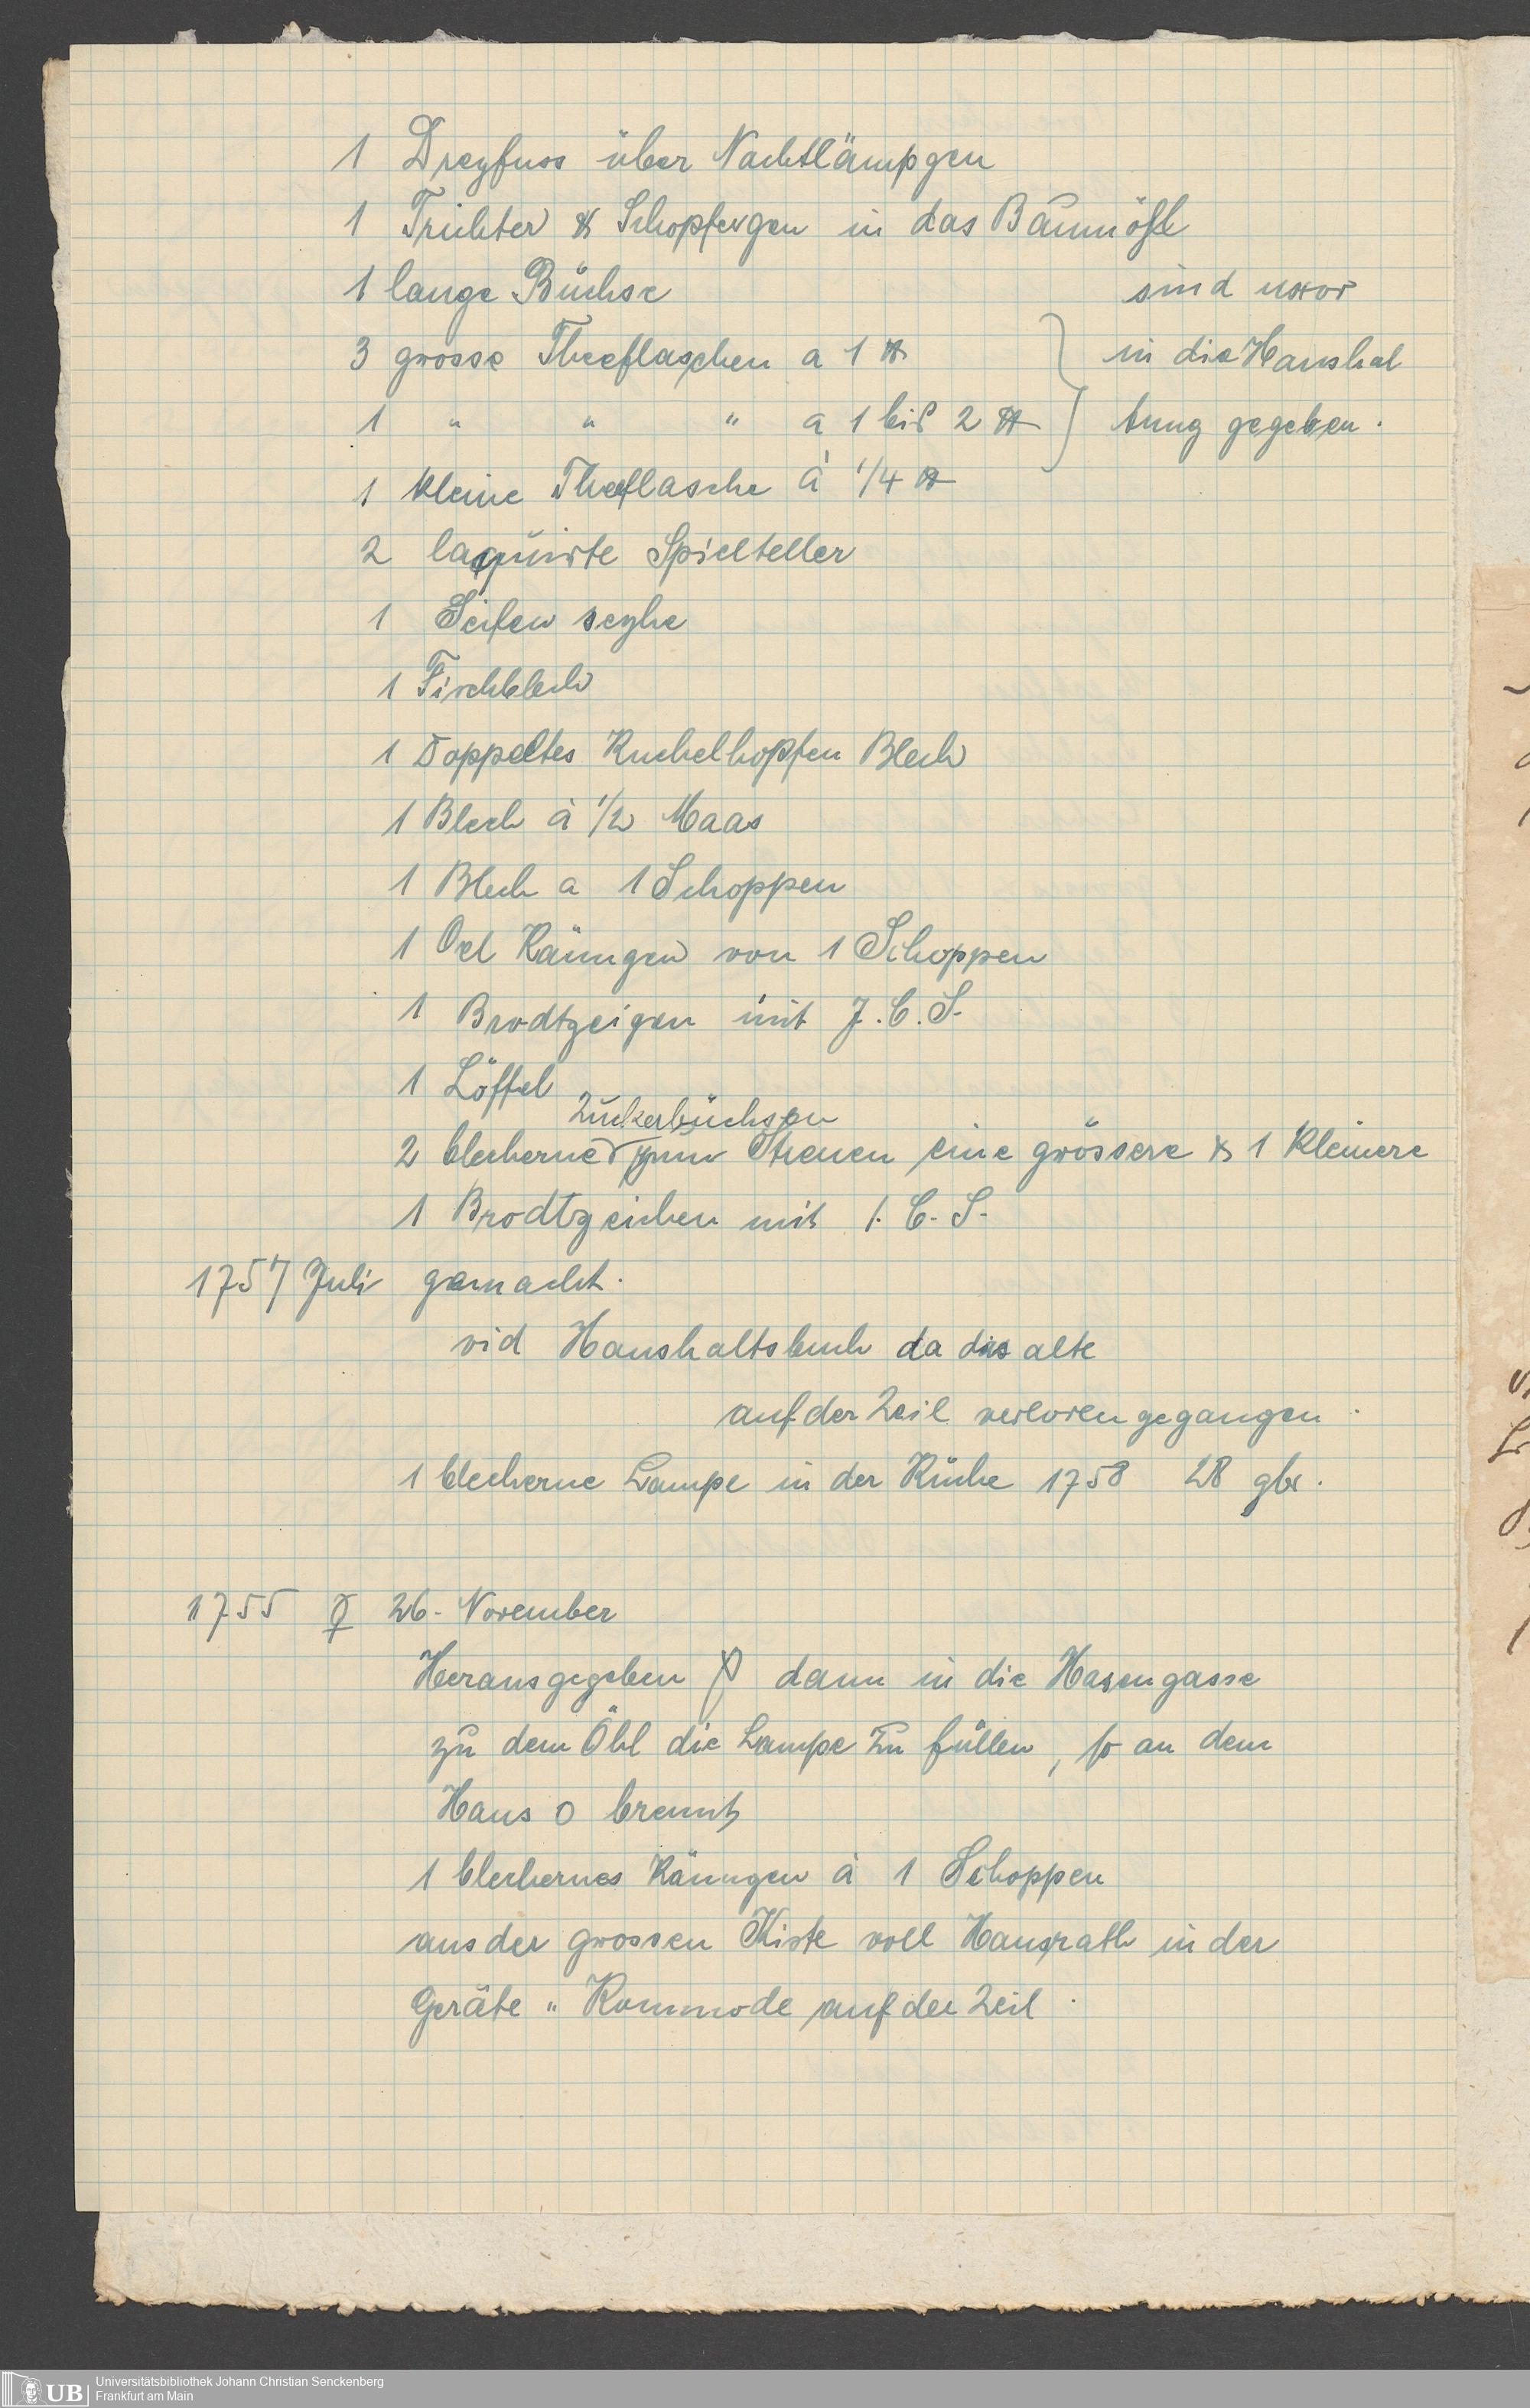 1 Dreyfuss über Nachtlämpgen
1 Trichter & Schopfergen in das Baumöhl
1 lange Büchse sind uxor
3 grosse Theeflaschen a 1 ℔ in die Haushal
1 " " " a 1 bis 2 ℔ tung gegeben.
1 kleine Theeflasche à 1/4 ℔
2 laquirte Spielteller
1 Seifen seyhe
1 Fischblech
1 Doppeltes Kuchelhopfen Blech
1 Blech à 1/2 Maas
1 Blech a 1 Schoppen
1 Oel Känngen von 1 Schoppen
1 Brodtzeigen mit J. C. S.
1 Löffel
Zuckerbüchsen
2 blecherne zum Streuen eine grössere & 1 kleinere
1 Brodtzeichen mit I. C. S.
1757 Juli gemacht.
vid Haushaltsbuch da das alte
auf der Zeil verloren gegangen.
1 blecherne Lampe in der Küche 1758 28 gbr.
1755 ☿ 26. November
Herausgegeben dann in die Hasengasse
zu dem Öhl die Lampe zu füllen, so an dem
Haus o brennt
1 blechernes Känngen à 1 Schoppen
aus der grossen Kiste voll Hausrath in der
Geräte " Kommode auf der Zeil.
UB Universitätsbibliothek Johann Christian Senckenberg
Frankfurt am Main